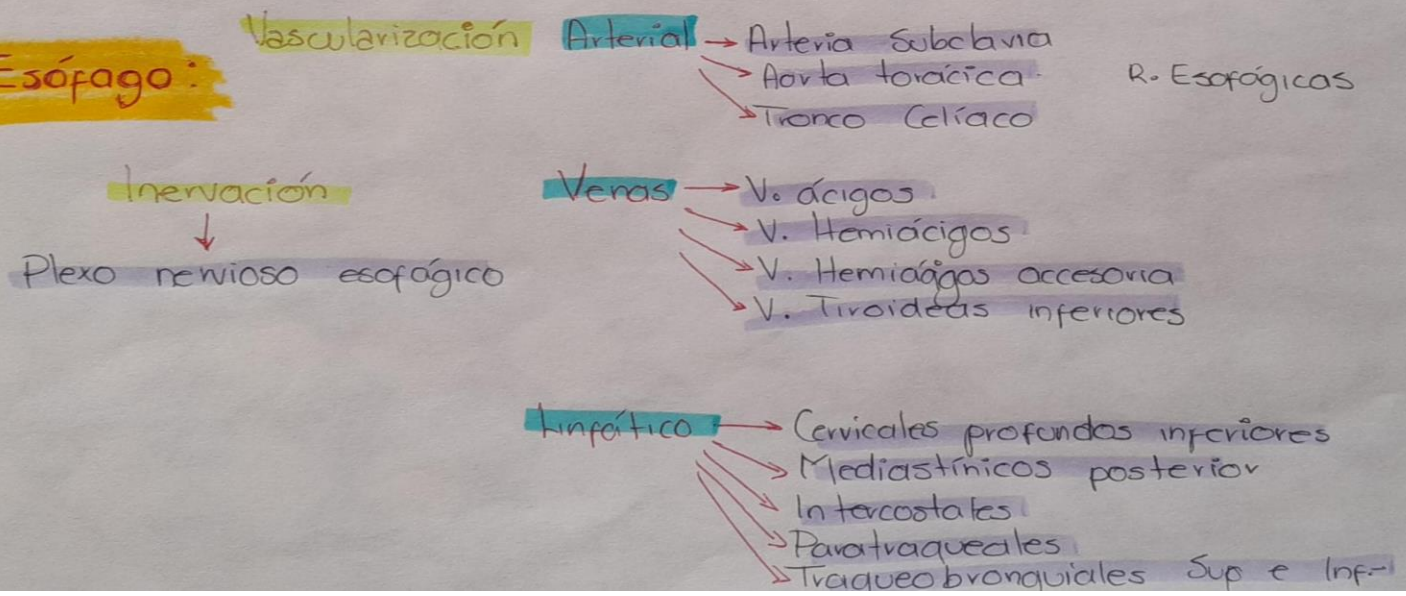 Vascularización Arterial → Arteria Subclavia
Esófago:
→ Aorta torácica. R. Esofágicas
→ Tronco Celíaco
Inervación
Venas → V. ácigos
→ V. Hemiácigos
Plexo nervioso esofágico
→ V. Hemiácigos accesoria
→ V. Tiroideas inferiores
Linfático → Cervicales profundos inferiores
→ Mediastínicos posterior
→ Intercostales
→ Paratraqueales
→ Traqueobronquiales Sup e Inf.